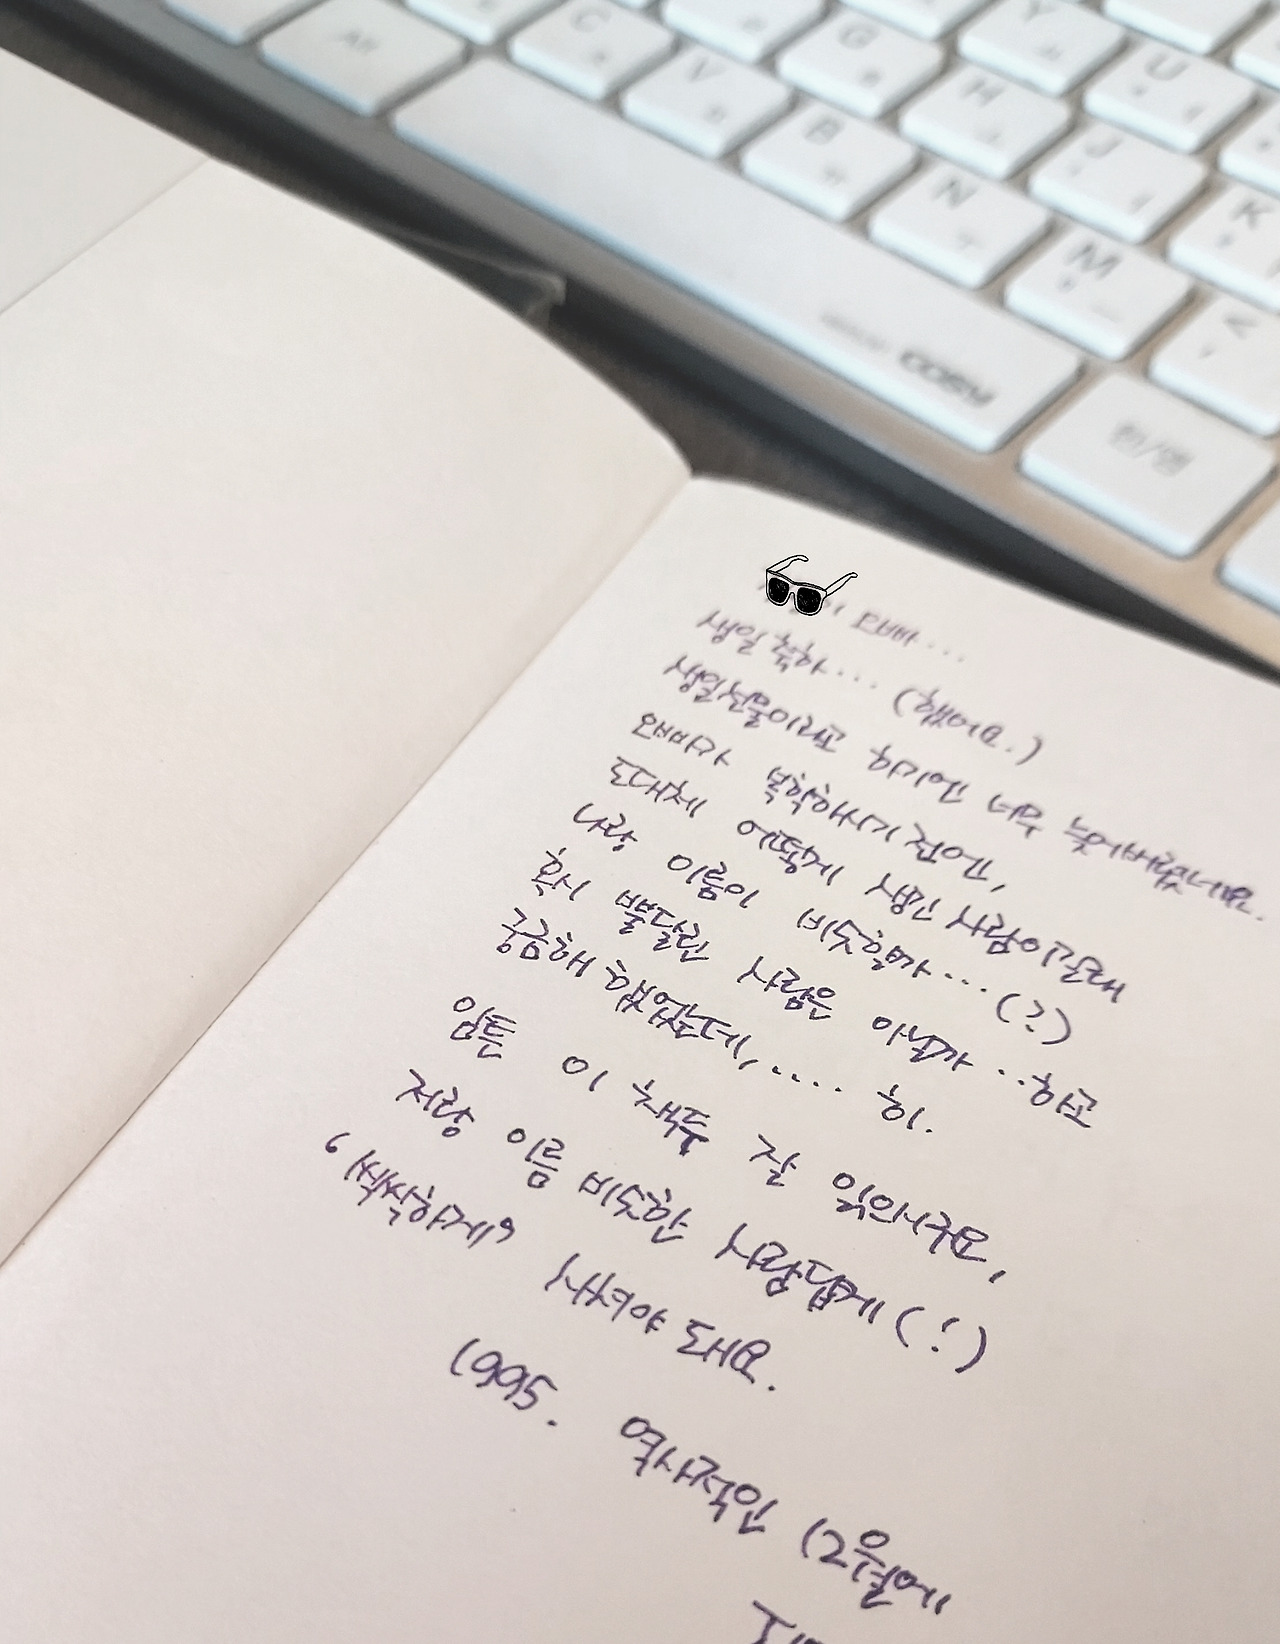 오빠...
생일 축하... (했어요.)
생일선물이라고 하기엔 너무 늦어버렸네요.
오빠가 복학하기 전엔,
도대체 어떻게 생긴 사람이길래
나랑 이름이 비슷할까... (?)
혹시 뿔달린 사람은 아닐까.. 하고
궁금해 했었는데, .... 히.
암튼 이 책두 잘 읽으시구요,
저랑 이름 비슷한 사람답게 (!)
'씩씩하게' 사셔야 돼요.
1995. 2월에
Alt
C
V
B
N
M
G
H
Y
U
J
K
한/영
COSY